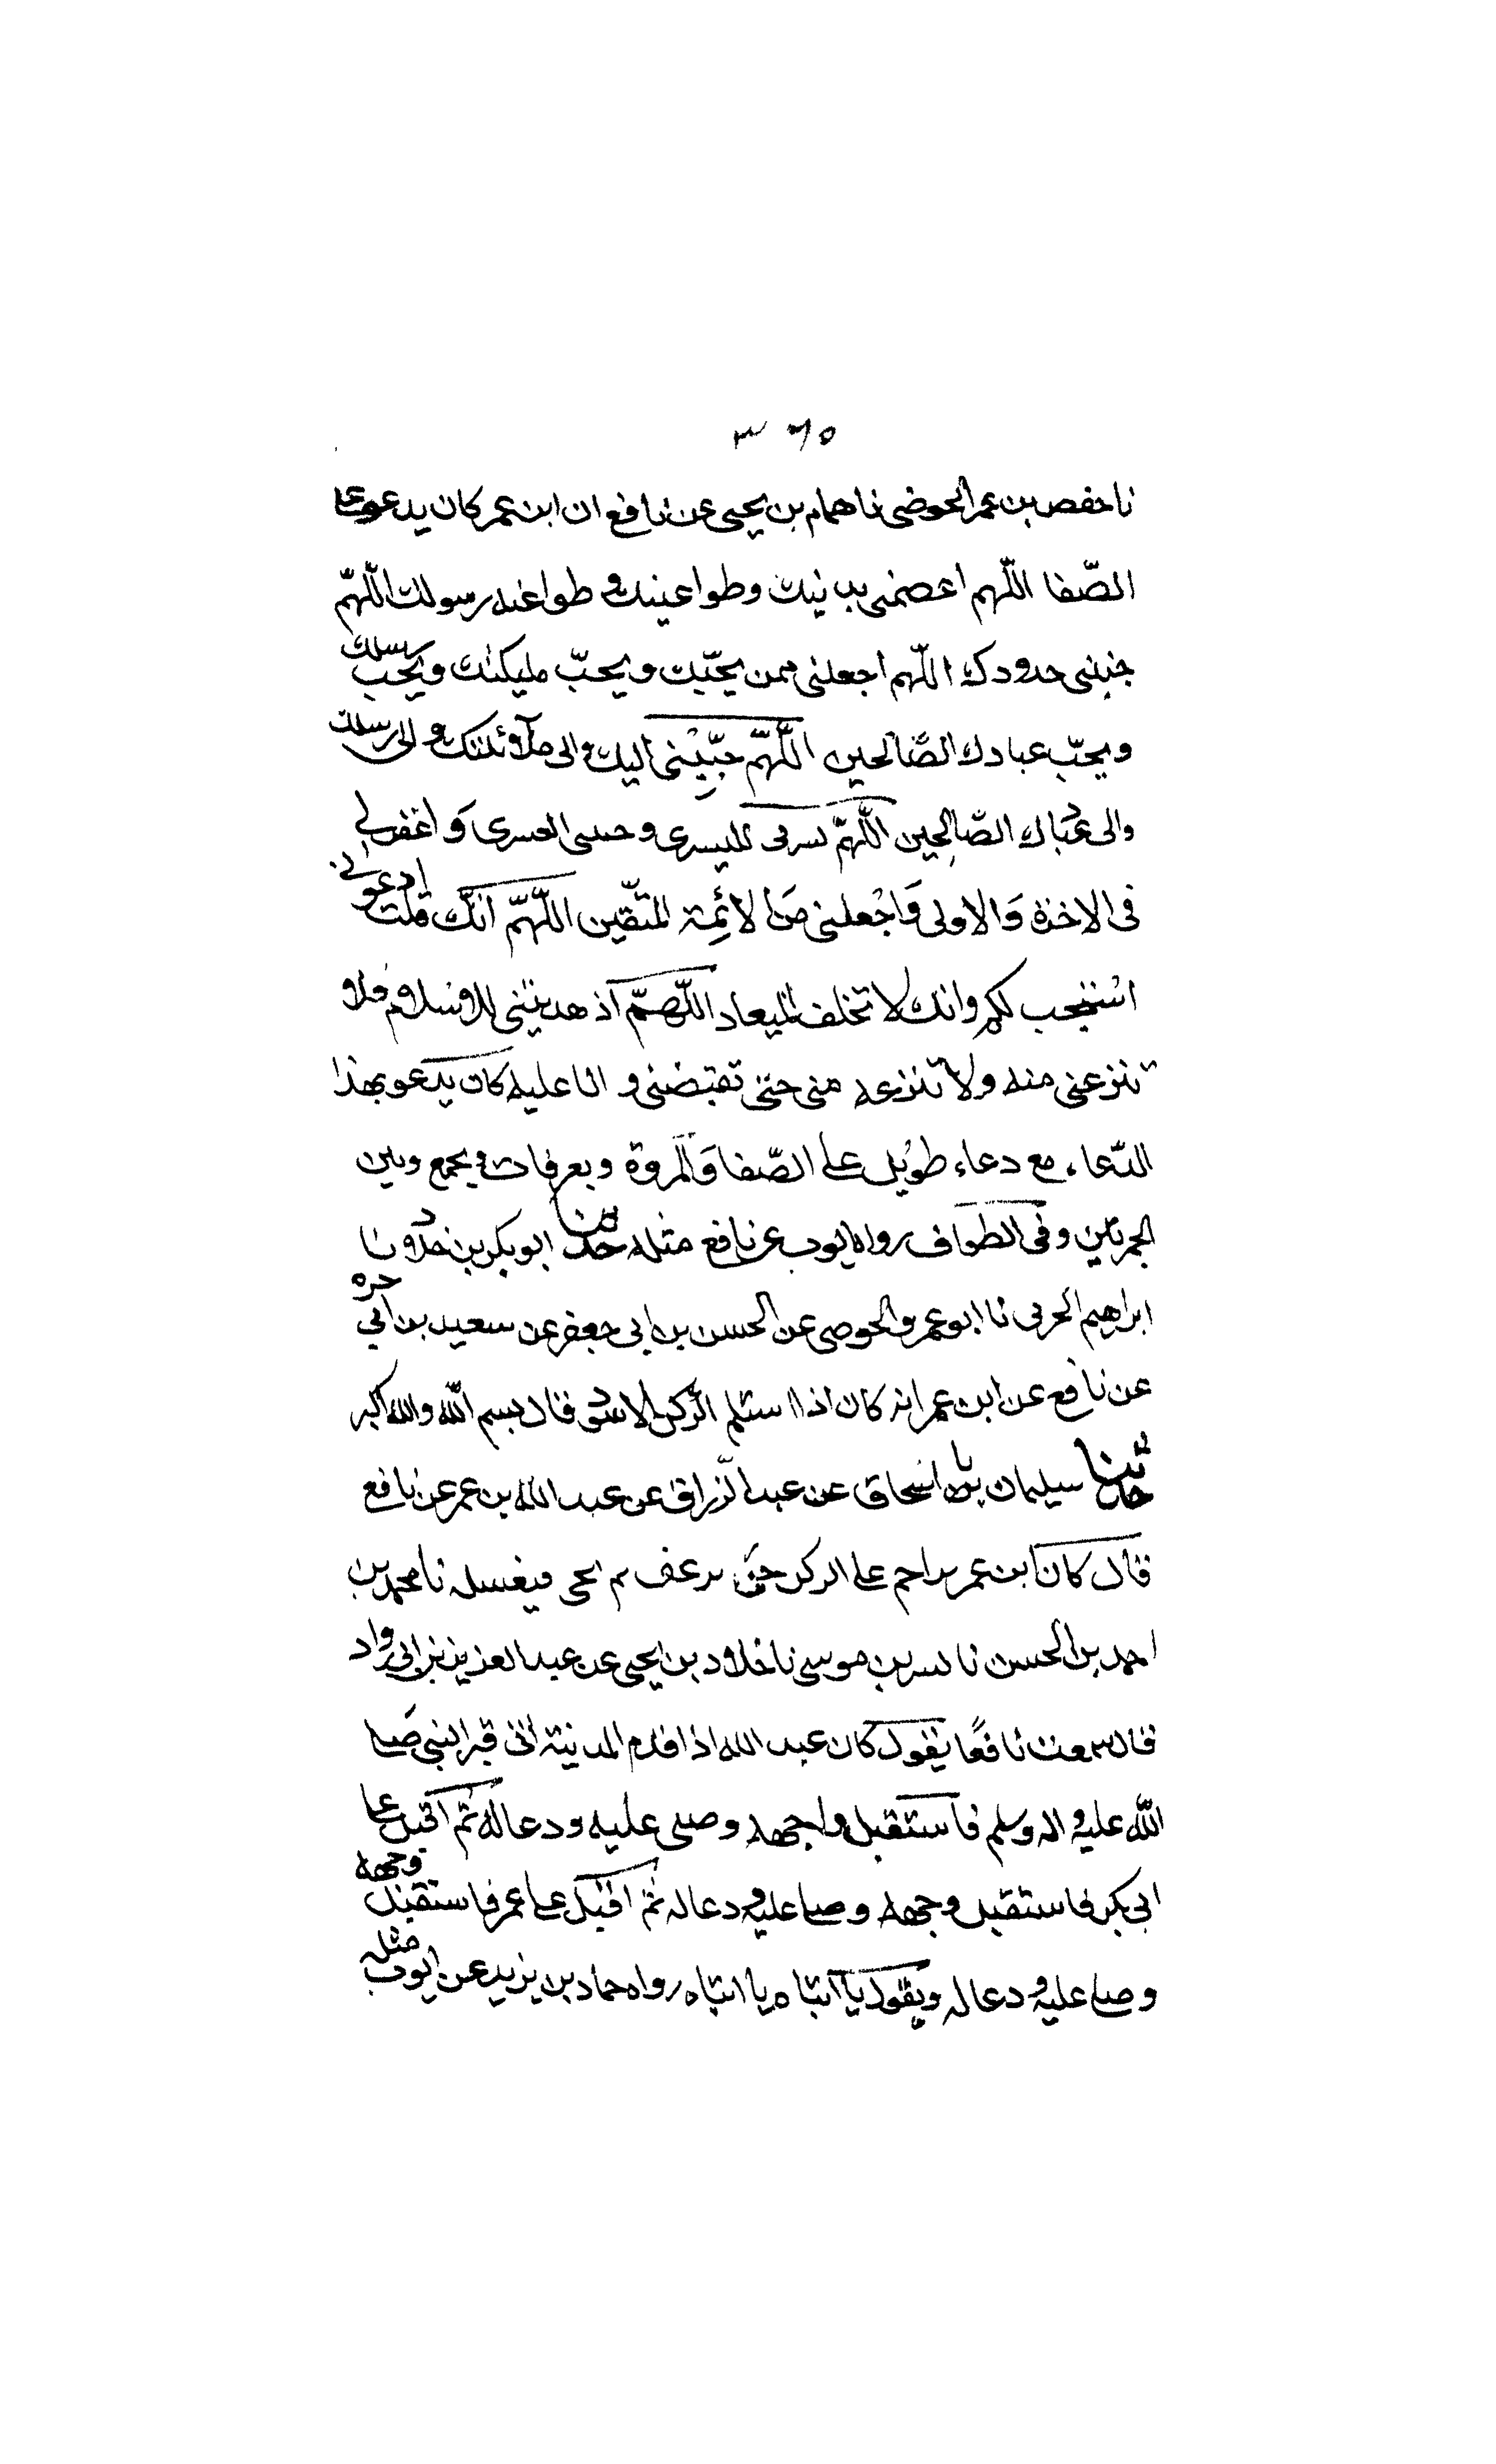 ٣٦٥
نا حفص بن عمر الحوضى نا همام بن يحيى عن نافع ان ابن عمر كان يدعو على
الصّفا اللّهم اعصمنى بدينك وطواعيتك وطواعيه رسولك اللّهمّ
جنبنى حدودك اللّهم اجعلنى ممن يحبّك ويحبّ مليكتك ويحب رسلك
ويحبّ عبادك الصّالحين اللّهمّ حبّبنى اليك والى ملائكتك والى رسلك
والى عبادك الصّالحين اللّهمّ يسرنى لليسرى وجنبنى العسرى وَاغفر لى
فى الاخرة وَالاولى وَاجْعلنى من ائمة المتّقين اللّهمّ انّك قلت ادعونى
استجب لكم وانك لا تخلف الميعاد اللّهمّ اذ هديتنى للاسلام فلا
تنزعنى منه ولا تنزعه منى حتى تقبضنى وانا عليه كان يدعو بهذا
الدّعاء مع دعاء طويل على الصّفا وَالمروة وبعرفات وبجمع وبين
الجمرتين وفى الطواف رواه ايوب عن نافع مثله حدثنا ابو بكر بن خلاد نا
ابراهيم الحربى نا ابو عمر والحوضى عن الحسن بن ابى جعفر عن سعيد بن ابى حره
عن نافع عن ابن عمر انه كان اذا استلم الركن الاسود قال بسم اللّه واللّه اكبر
حدثنا سليمان نا اسحاق عن عبد الرّزاق عن عبد الله بن عمر عن نافع
قال كان ابن عمر يزاحم على الركن حتى يرعف ثم يجى فيغسله نا محمد بن
احمد بن الحسن نا بشر بن موسى نا خلاد بن يحيى عن عبد العزيز بن ابى رواد
قال سمعت نافعًا يقول كان عبد الله اذا قدم المدينة اتى قبر النبى صلى
اللّه عليه واله وسلم فاستقبل واجهه وصلى عليه ودعا له ثم اقبل على
ابى بكر فاستقبل وجهه وصلى عليه ودعا له ثم اقبل على عمر فاستقبل وجهه
وصلى عليه ودعا له ويقول يا ابتاه يا ابتاه رواه حماد بن يزيد عن ايوب مثله